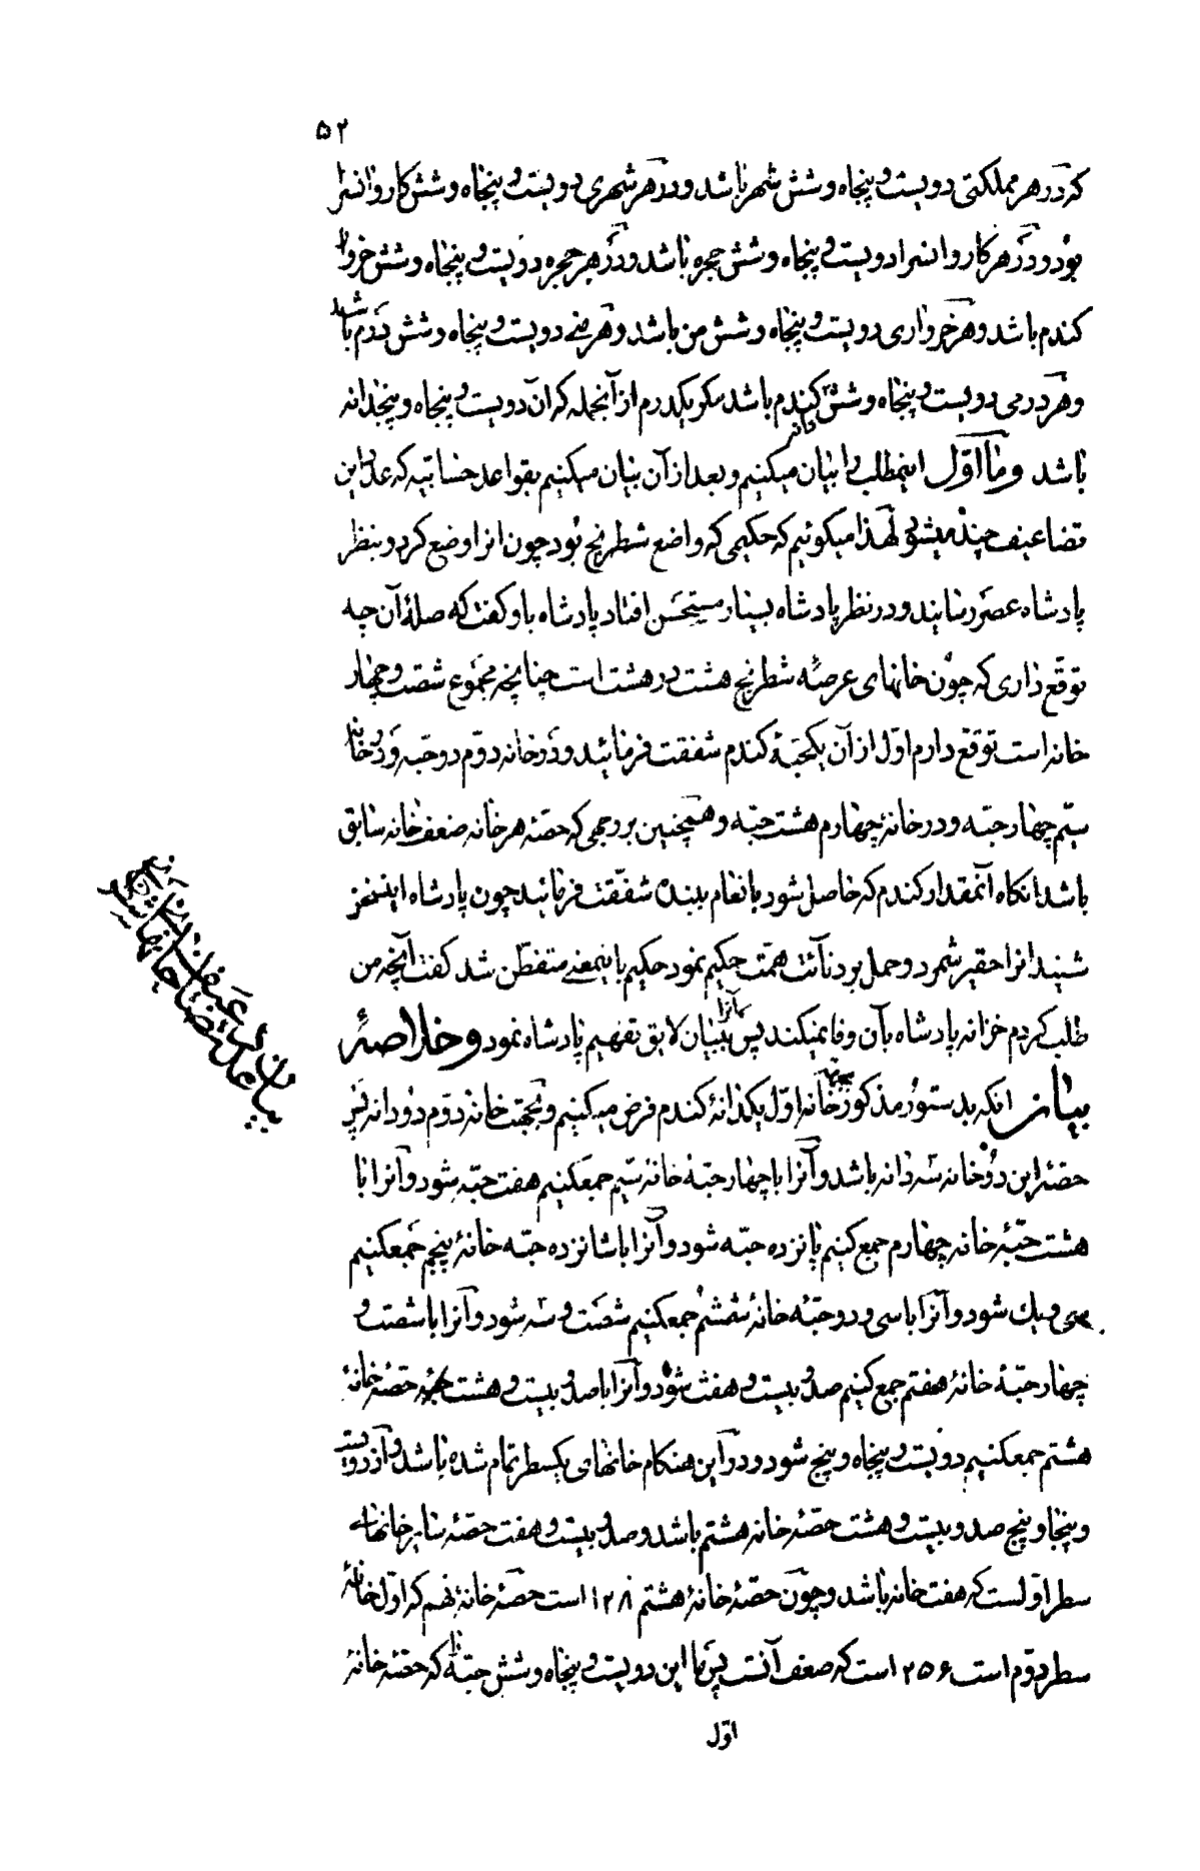 ۵۲
که در هر مملکتی دویست و پنجاه و شش شهر باشد و در هر شهری دویست و پنجاه و شش کاروانسرا
بود و در هر کاروانسرا دویست و پنجاه و شش حجره باشد و در هر حجره دویست و پنجاه و شش خروار
کندم باشد و هر خرواری دویست و پنجاه و شش من باشد و هر منی دویست و پنجاه و شش درم باشد
و هر درمی دویست و پنجاه و شش دانه کندم باشد مکر یکدرم از آنجمله که آن دویست و پنجاه و پنجدانه
باشد و ما اوّل اینمطلب را بیان میکنیم و بعد از آن بیان میکنیم بقواعد حسابیه که عدد این
تضاعیف چند میشود لهذا میکوئیم که حکیمی که واضع شطرنج بود چون انرا وضع کرد و بنظر
پادشاه عصر رسانید و در نظر پادشاه بسیار مستحسن افتاد پادشاه باو کفت که صلهٔ آن چه
توقّع داری که چون خانهای عرصهٔ شطرنج هشت در هشت است چنانچه مجموع شصت و چهار
خانه است توقع دارم اوّل از آن یکحبّهٔ کندم شفقت فرمائید و در خانه دوّم دو حبّه و در خانه
سیّم چهار حبّه و در خانهٔ چهارم هشت حبّه و همچنین بر وجهی که حصّهٔ هر خانه ضعف خانه سابق
باشد انکاه آنمقدار کندم که حاصل شود بانعام بنده شفقت فرمائید چون پادشاه اینسخن
شنید انرا حقیر شمرد و حمل بر دنائت همّت حکیم نمود حکیم باینمعنی متفطّن شد کفت آنچه من
طلب کردم خزانه پادشاه بآن وفا نمیکند پس آنرا ببیان لایق تفهیم پادشاه نمود و خلاصهٔ
بیان انکه بدستور مذکور بجهة خانه اوّل یکدانهٔ کندم فرض میکنیم و بجهت خانه دوّم دو دانه پس
حصّهٔ این دو خانه سه دانه باشد و آنرا با چهار حبّهٔ خانه سیّم جمعکنیم هفت حبّه شود و آنرا با
هشت حبّهٔ خانه چهارم جمع کنیم پانزده حبّه شود و آنرا با شانزده حبّه خانهٔ پنجم جمعکنیم
سی و یك شود و آنرا با سی و دو حبّه خانهٔ ششم جمعکنیم شصت و سه شود و آنرا با شصت و
چهار حبّهٔ خانهٔ هفتم جمع کنیم صد و بیست و هفت شود و آنرا با صد و بیست و هشت حبّه حصّه خانهٔ
هشتم جمعکنیم دویست و پنجاه و پنج شود و در این هنکام خانهای یکسطر تمام شده باشد و از دویست
و پنجاو پنج صد و بیست و هشت حصّهٔ خانه هشتم باشد و صد و بیست و هفت حصّهٔ سایر خانهای
سطر اولست که هفت خانه باشد و چون حصّهٔ خانهٔ هشتم ۱۲۸ است حصّهٔ خانهٔ نهم که اوّل خانهٔ
سطر دوّم است ۲۵۶ است که ضعف آنست پس ما این دویست و پنجاه و شش حبّه را که حصّه خانهٔ
اوّل